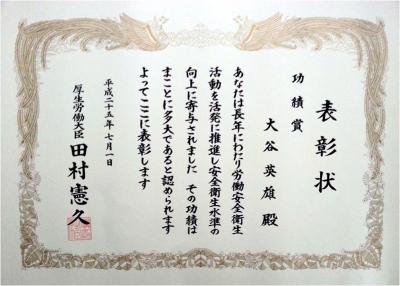 表彰状
功績賞
大谷英雄殿
あなたは長年にわたり労働安全衛生
活動を活発に推進し安全衛生水準の
向上に寄与されました その功績は
まことに多大であると認められます
よってここに表彰します
平成二十五年七月一日
厚生労働大臣 田村憲久